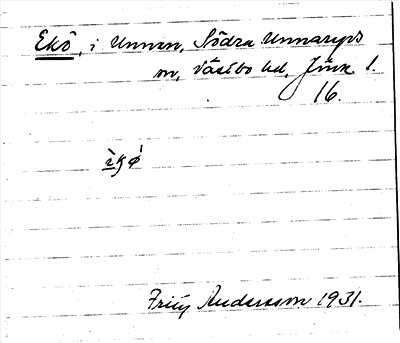 Ekö, i Unnen, Södra Unnaryds
sn, Västbo hd, Jönk l.
16.
Fritz Andersson 1931.